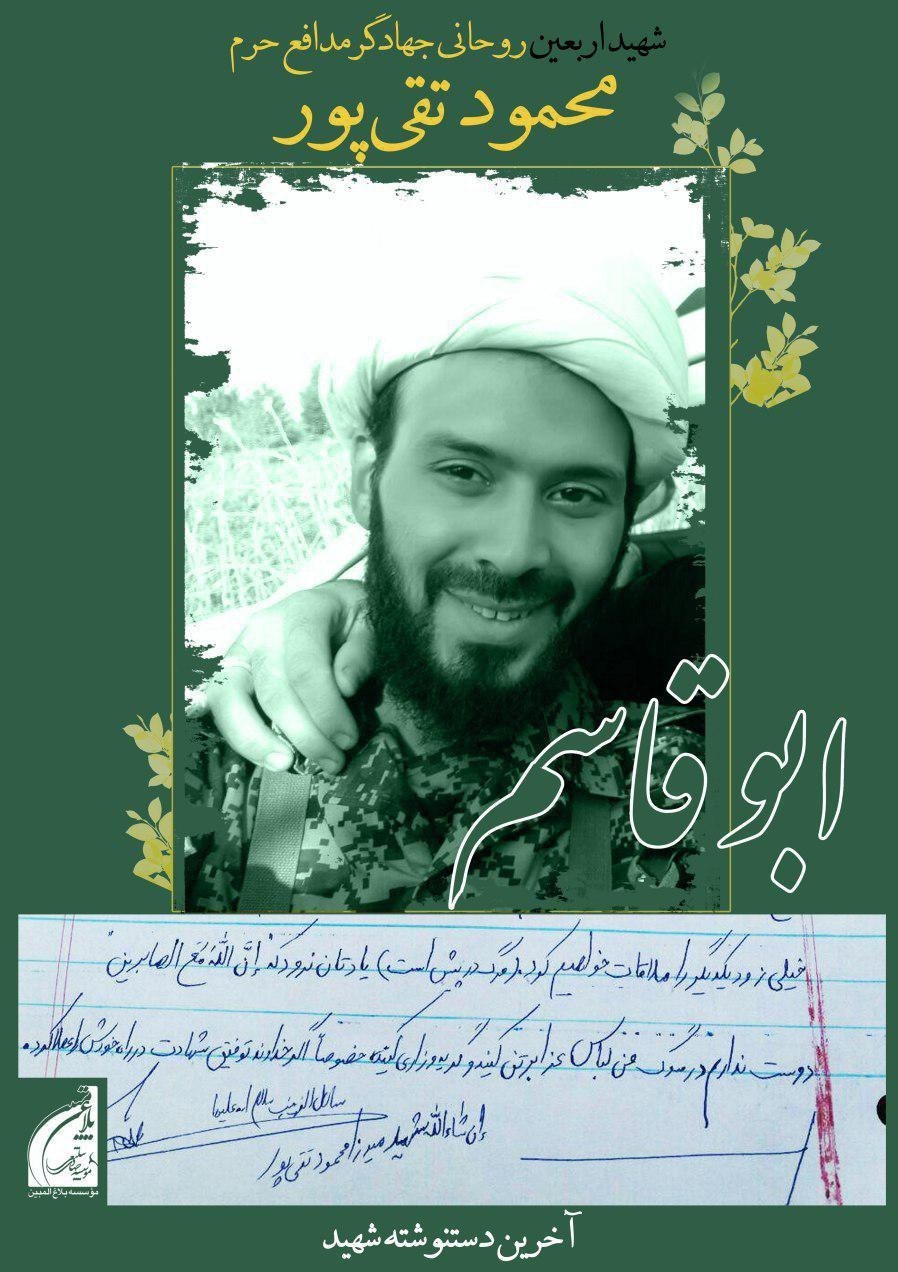 شهید اربعین روحانی جهادگر مدافع حرم
محمود تقی‌پور
ابوقاسم
خیلی زود یکدیگر را ملاقات خواهیم کرد، (مرگ در پیش است) یادتان نرود که "إنَّ اللّٰهَ مَعَ الصابرین"
دوست ندارم در سوگ من لباس عزا بر تن کنید و گریه و زاری کنید، خصوصاً اگر خداوند توفیق شهادت در راه خودش را عطا کرد.
إن شاءالله شهید میرزا محمود تقی پور
مؤسسه بلاغ المبین
آخرین دستنوشته شهید